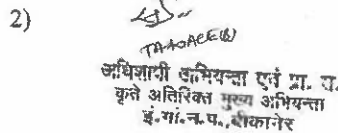 2)
अधिशाषी अभियन्ता एवं प्रा. स.
कृते अतिरिक्त मुख्य अभियन्ता
इं.गां.न.प., बीकानेर